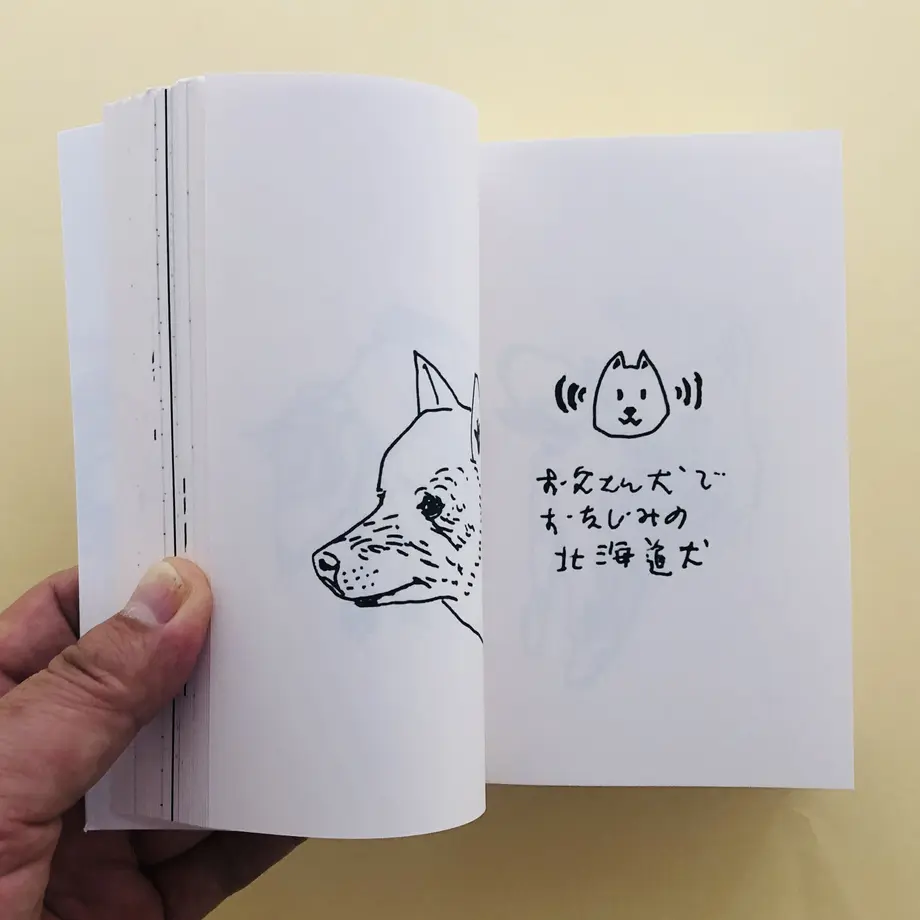 お父さん犬で
おなじみの
北海道犬